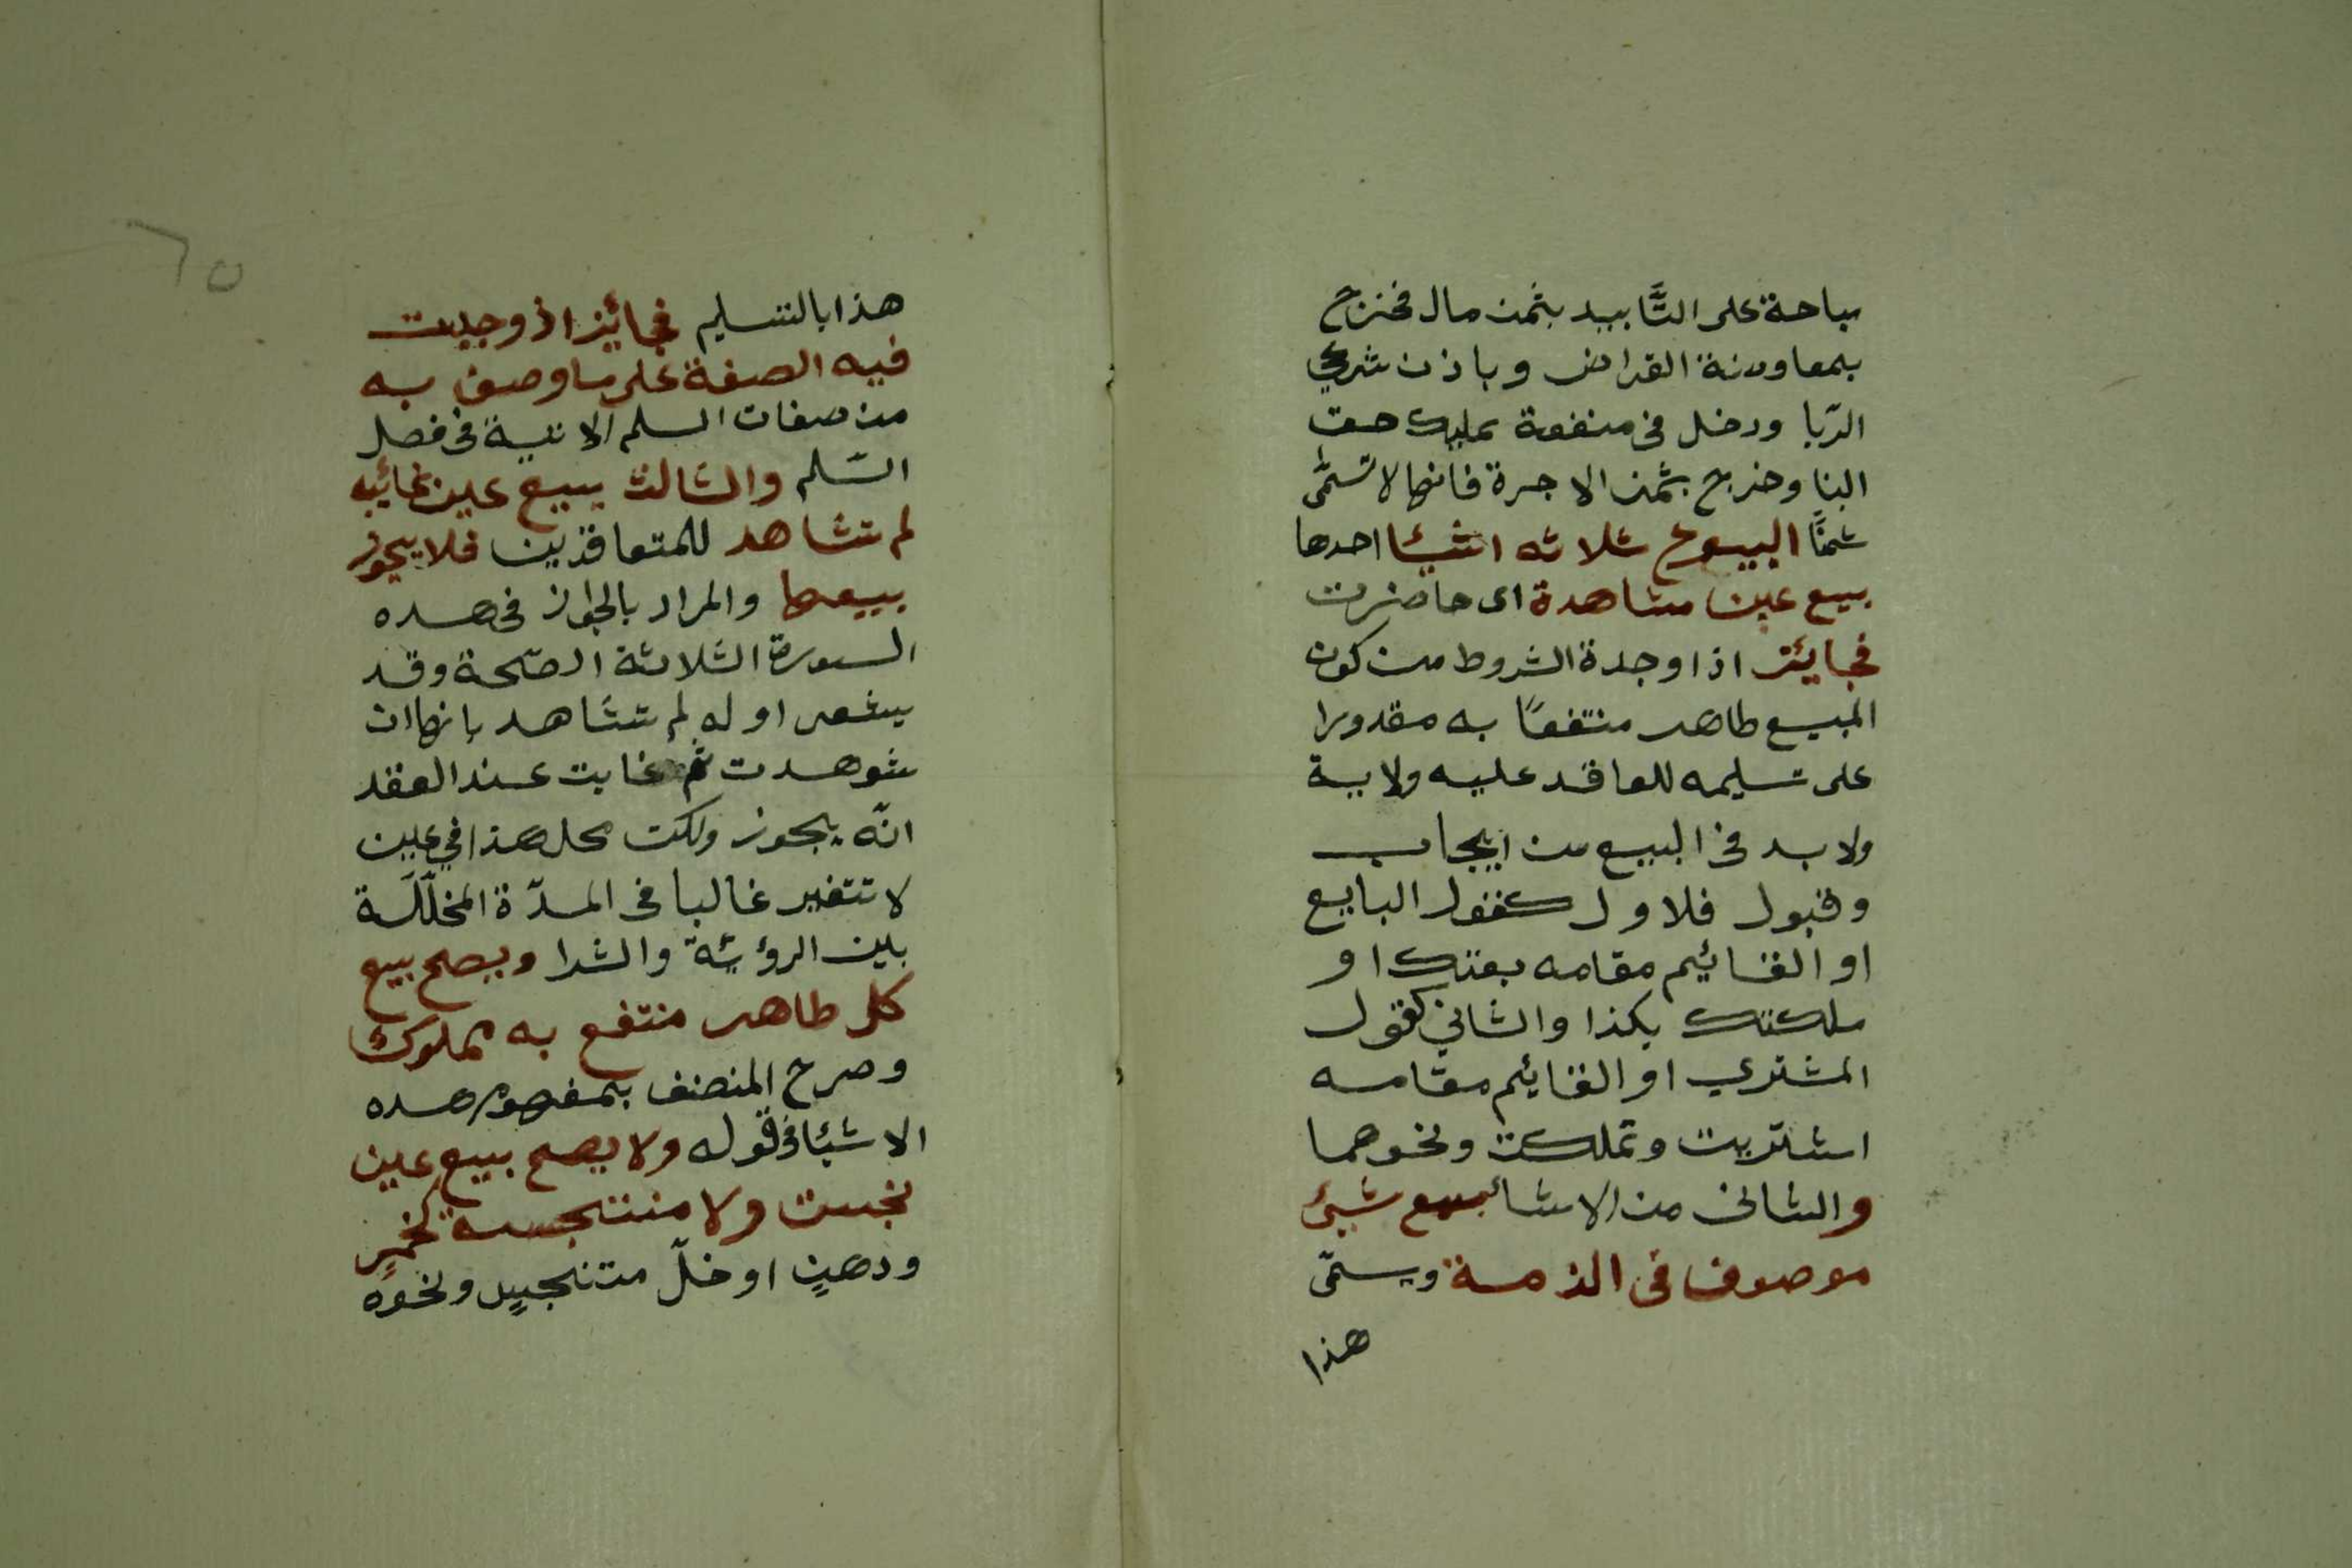 مباحة على التَّابيد بثمن مال فخنرج
بمعاوضة القراض وباذن شرعي
الرّبا ودخل في منفعة تمليك حق
البنا وخرج بثمن الاجرة فانها لا تسَمّى
ثمنًا البيوع ثلاثه اشيئا احدها
بيع عين مشاهدة اى حاضرت
فجايئز اذا وجدة الشروط من كون
المبيع طاهر منتفعًا به مقدورا
على تسليمه للعاقد عليه ولاية
ولابد فى البيع من ايجاب
وقبول فلاول كقول البايع
او القائيم مقامه بعتك او
ملكتك بكذا والثاني كقول
المشتري او القايئم مقامه
اشتريت وتملكت ونحوهما
والثانى من الاشيا بيع شيئ
موصوف فى الذمة ويسمّى
هذا
٦٥
هذا بالتسليم فجائيز اذ وجدت
فيه الصفة على ما وصف به
من صفات السلم الاتية فى فصل
السّلم والثالث بيع عين غائيبه
لم تشاهد للمتعاقدين فلا يجوز
بيعها والمراد بالجواز فى هده
السورة الثلاثة الصّحة وقد
يشعر اوله لم تشاهد بانها ان
شوهدت ثم غابت عند العقد
انّه يجوز ولكن محل هذا في عين
لا تتغير غالبا فى المدّة المخلّلَة
بين الرؤيئة والشرا ويصح بيع
كل طاهر منتفع به مملوك
وصرح المنصنف بمفهوم هده
الاشيئا فى قوله ولا يصح بيع عين
نجست ولا منتنجسه كخمرٍ
ودهنٍ او خلّ متنجيسٍ ونحوه